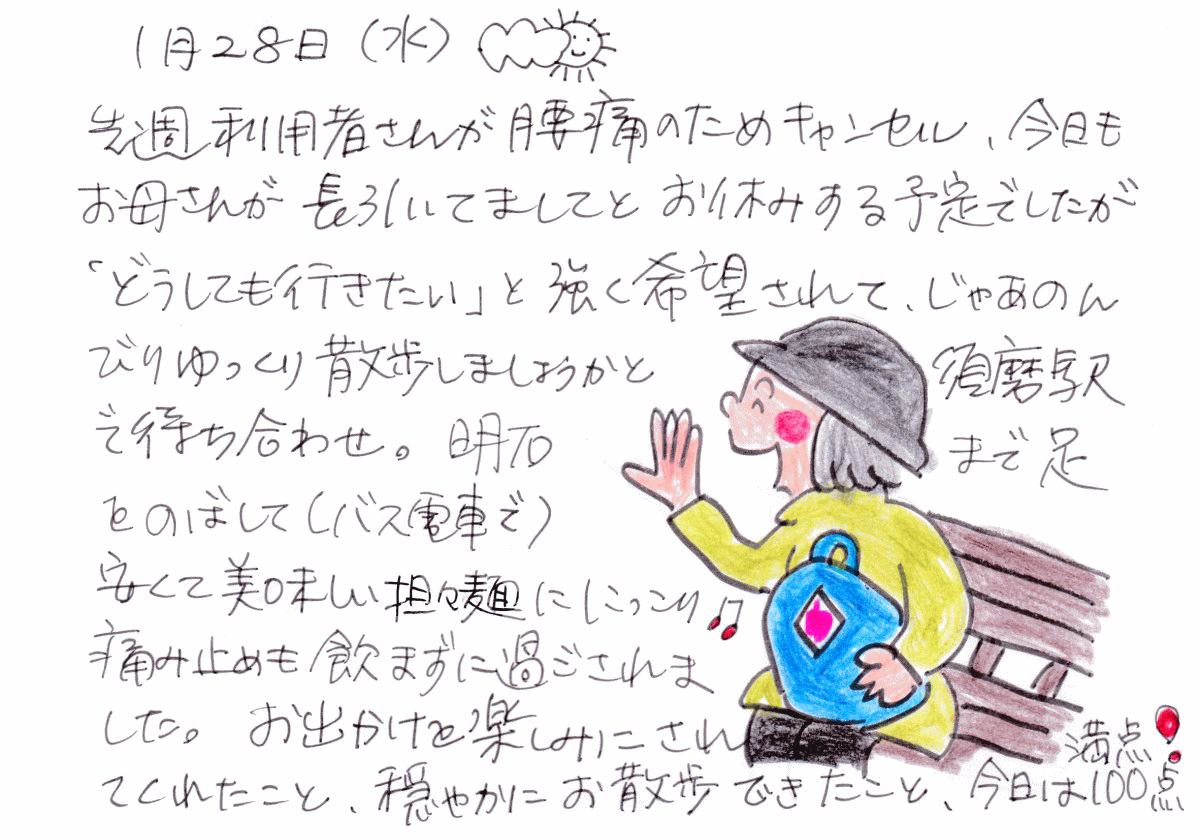 1月28日(水)
先週利用者さんが腰痛のためキャンセル、今日も
お母さんが長引いてましてとお休みする予定でしたが
「どうしても行きたい」と強く希望されて、じゃあのん
びりゆっくり散歩しましょうかと 須磨駅
で待ち合わせ。明石 まで足
をのばして(バス電車で)
安くて美味しい担々麺ににっこり
痛み止めも飲まずに過ごされま
した。お出かけを楽しみにされ 満点!
てくれたこと、穏やかにお散歩できたこと、今日は100点